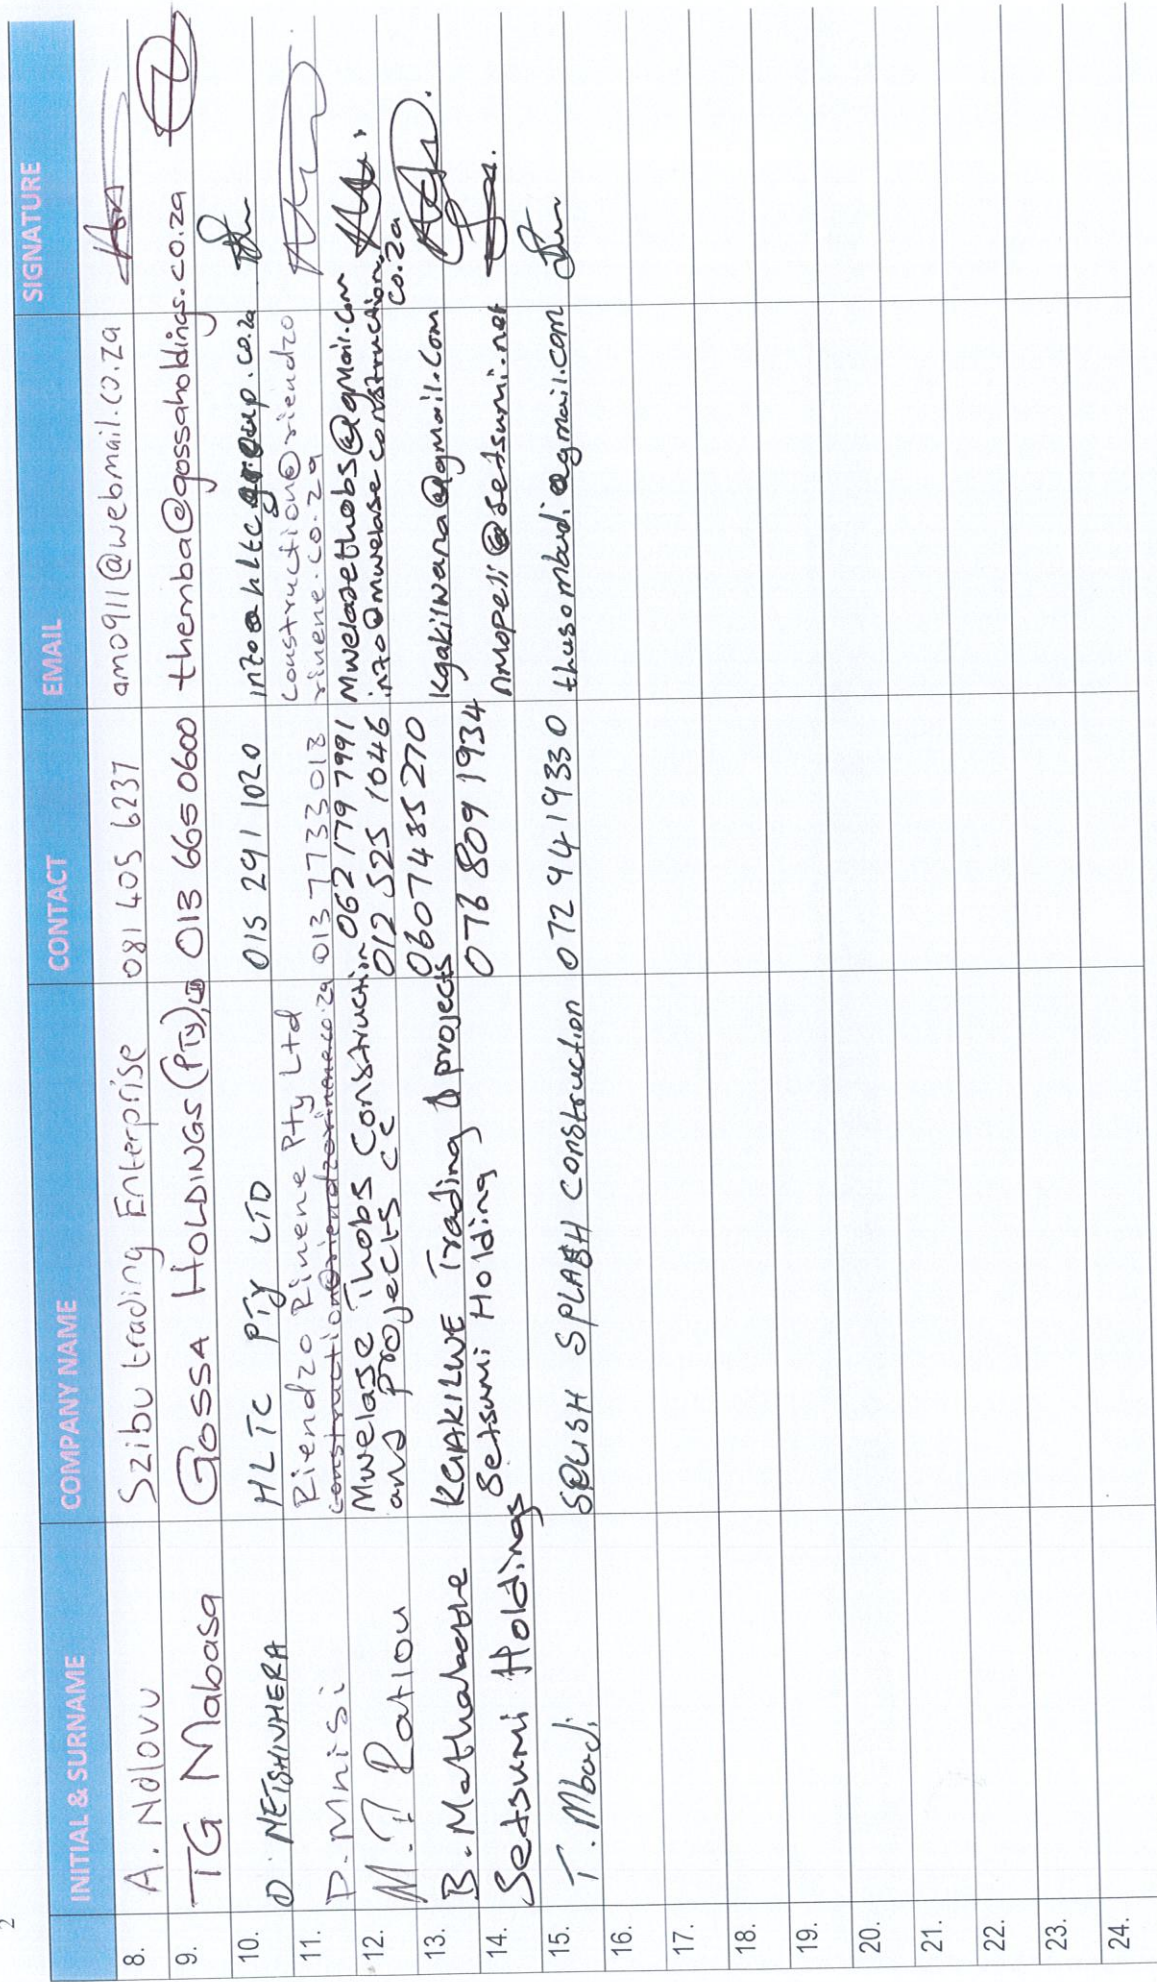 2
INITIAL & SURNAME COMPANY NAME CONTACT EMAIL SIGNATURE
8. A. Ndlovu Szibu trading Enterprise 081 405 6237 amo911@webmail.co.za
9. TG Mabasa GOSSA HOLDINGS (PTY) Ltd 013 665 0600 themba@gossaholdings.co.za
10. HLTC PTY LTD 015 291 1020 info@hltcgroup.co.za
11. D. Mnisi Riendzo Rinene Pty Ltd 013 7733 013 construction@riendzo
construction@riendzorinene.co.za rinene.co.za
12. Mwelase Thobs Construction 062 179 7991 Mwelasethobs@gmail.com
and projects cc 012 525 1046 info@mwelaseconstruction.
co.za
13. B. Mathabathe KGAKILWE Trading & projects 0607435270 kgakilwana@gmail.com
14. Setsumi Holdings Setsumi Holding 076 809 1934 Amopedi@setsumi.net
15. T. Mbedi SQUISH SPLASH Construction 072 9419330
16.
17.
18.
19.
20.
21.
22.
23.
24.